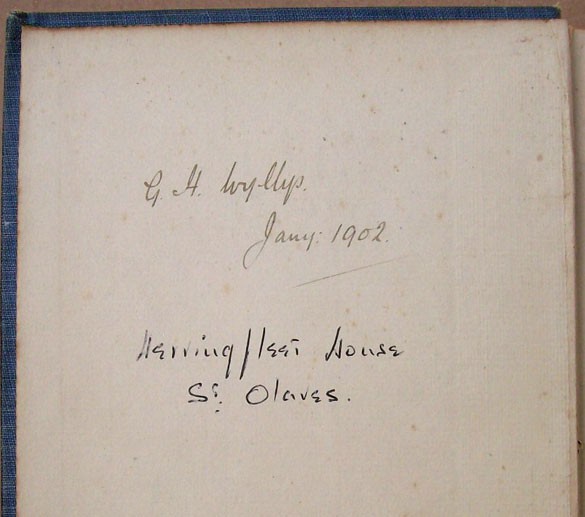 G. H. Wyllys.
Jany: 1902.
Herringfleet House
St. Olaves.